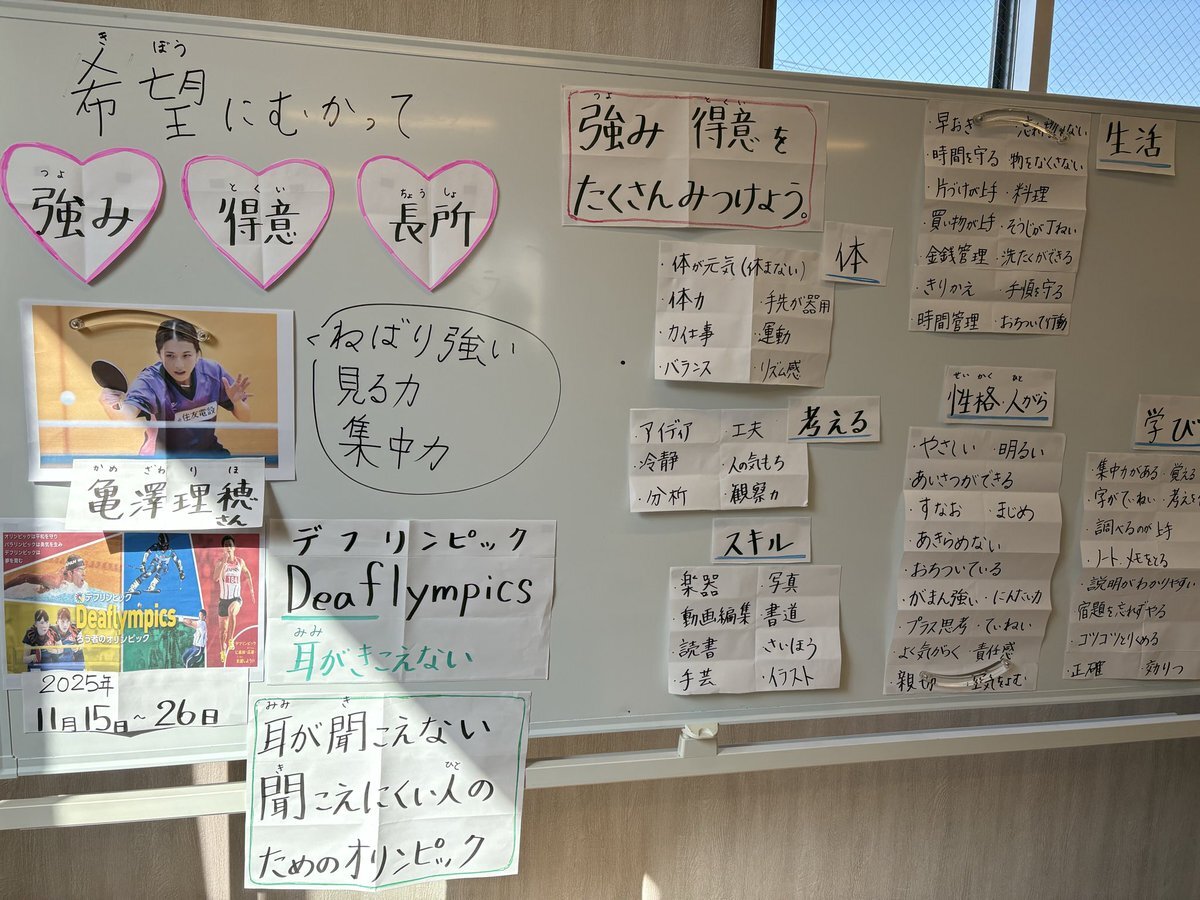 希望にむかって
きぼう
強み
つよ
得意
とくい
長所
ちょうしょ
住友電設
亀澤理穂さん
かめざわりほ
ねばり強い
見る力
集中力
オリンピックは平和を守り
パラリンピックは勇気を生み
デフリンピックは
夢を育む
デフリンピック
Deaflympics
ろう者のオリンピック
2025年
11月15日~26日
デフリンピック
Deaflympics
みみ
耳がきこえない
みみ き
耳が聞こえない
き ひと
聞こえにくい人の
ためのオリンピック
つよ とくい
強み 得意を
たくさんみつけよう。
体
・体が元気(休まない)
・体力 ・手先が器用
・力仕事 ・運動
・バランス ・リズム感
考える
・アイディア ・工夫
・冷静 ・人の気もち
・分析 ・観察力
スキル
・楽器 ・写真
・動画編集 ・書道
・読書 ・さいほう
・手芸 ・イラスト
生活
・早おき ない
・時間を守る ・物をなくさない
・片づけが上手 ・料理
・買い物が上手 ・そうじがていねい
・金銭管理 ・洗たくができる
・きりかえ ・手順を守る
・時間管理 ・おちついて行動
せいかく ひと
性格・人がら
・やさしい ・明るい
・あいさつができる
・すなお ・まじめ
・あきらめない
・おちついている
・がまん強い ・にんたい力
・プラス思考 ・ていねい
・よく気がつく ・責任感
・親切 ・空気をよむ
学び
・集中力がある ・覚える
・字がていねい ・考えを
・調べるのが上手
・ノート、メモをとる
・説明がわかりやすい
・宿題を忘れずやる
・コツコツとりくめる
・正確 ・効りつ